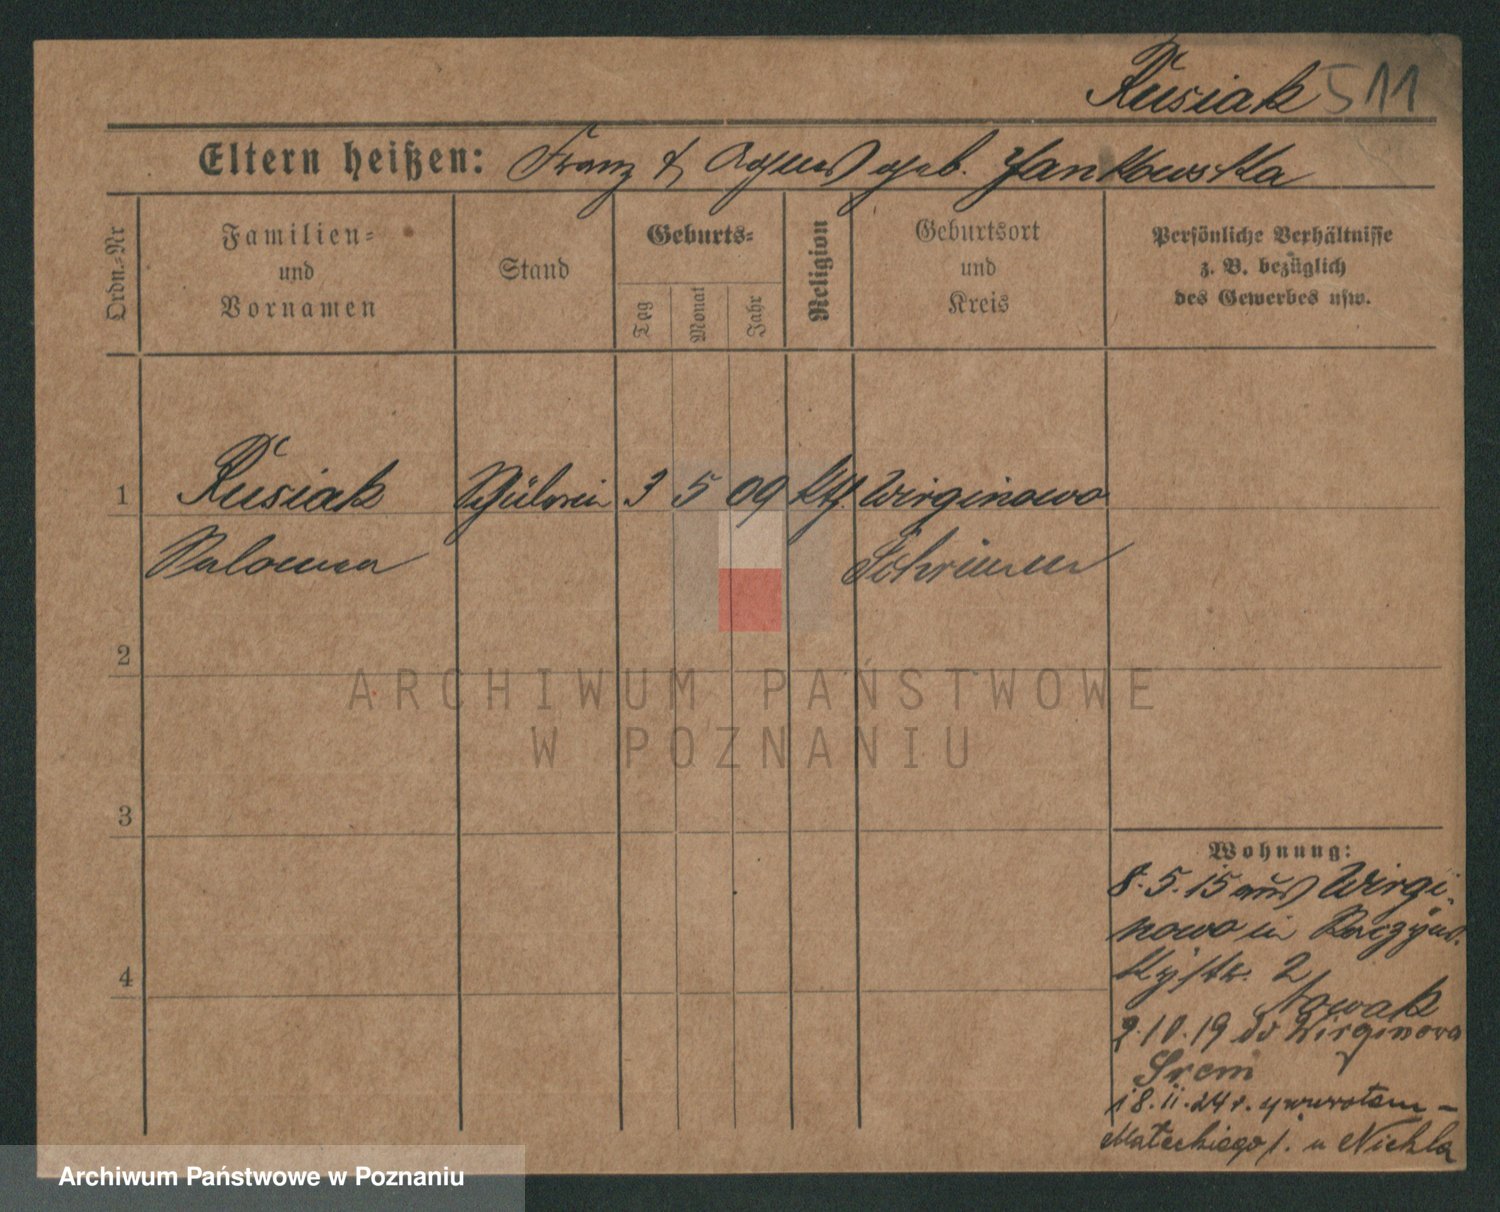 Kusiak 511
Eltern heißen: Franz & Agnes geb. Jankowska
Ordn.-Nr
Familien-
und
Vornamen
Stand
Geburts-
Tag
Monat
Jahr
Religion
Geburtsort
und
Kreis
Persönliche Verhältnisse
z. B. bezüglich
des Gewerbes usw.
1 Kusiak Schülerin 3 5 09 kth. Wirginowo
Salomea Schrimm
2
ARCHIWUM PAŃSTWOWE
W POZNANIU
3
4
Wohnung:
8.5.15 aus Wirgi-
nowo in Raczyns-
kystr. 2
Nowak
2.10.19 do Wirginowa
Śrem
18.11.24 r. z powrotem -
Mateckiego u Nichla
Archiwum Państwowe w Poznaniu